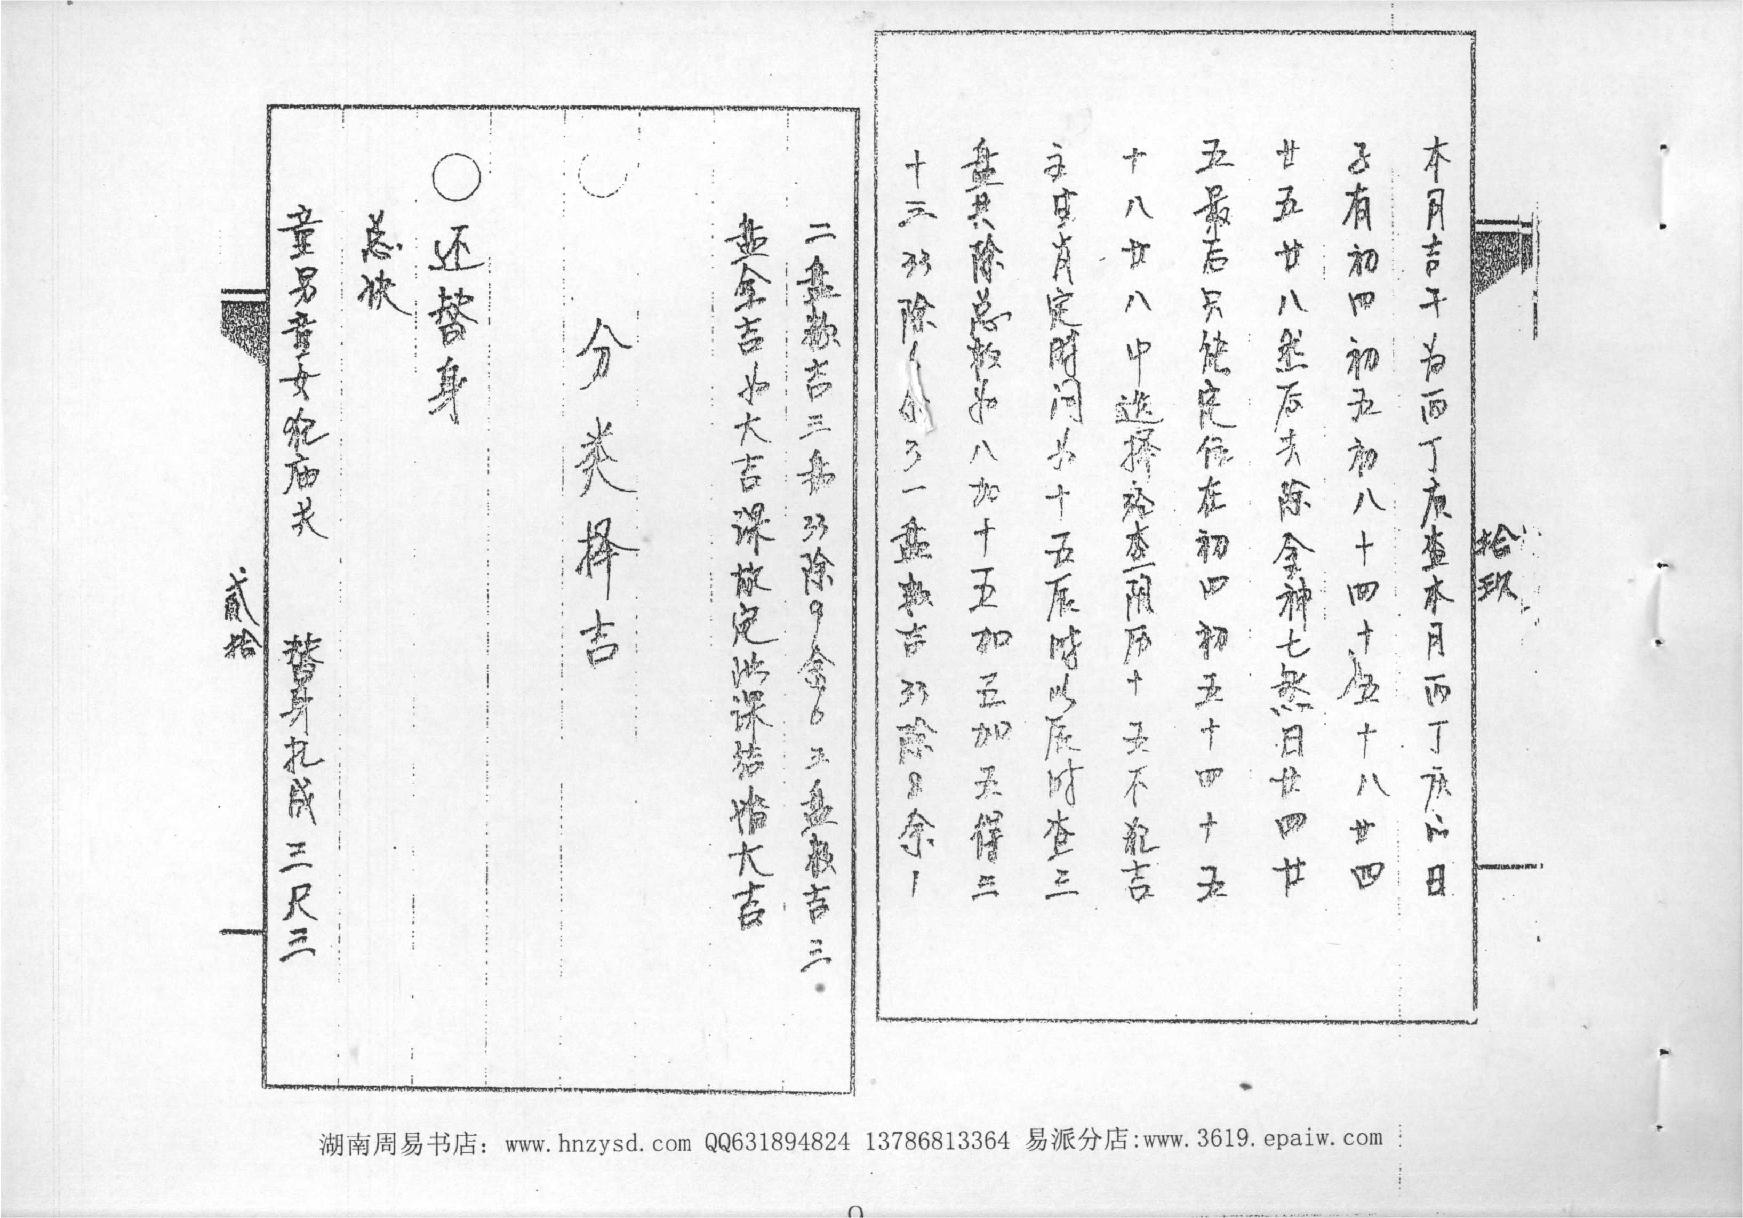 本月吉干为丙丁庚查本月丙丁庚的日
子有初四初五初八十四十五十八廿四
廿五廿八然后去除金神七煞日廿四廿
五最后只能定位在初四初五十四十五
十八廿八中选择 查阴历十五不犯吉
定时间为十五辰时以辰时查三
盘共除总数为八加十五加五加五得三
十三 33除 余 一盘数吉 33除8余1
拾玖
二盘数吉三 33除9余6 三盘数吉三
盘全吉为大吉课故定此课结婚大吉
分类择吉
○还替身
总诀
童男童女犯庙关 替身扎成三尺三
贰拾
湖南周易书店：www.hnzysd.com QQ631894824 13786813364 易派分店:www.3619.epaiw.com
9